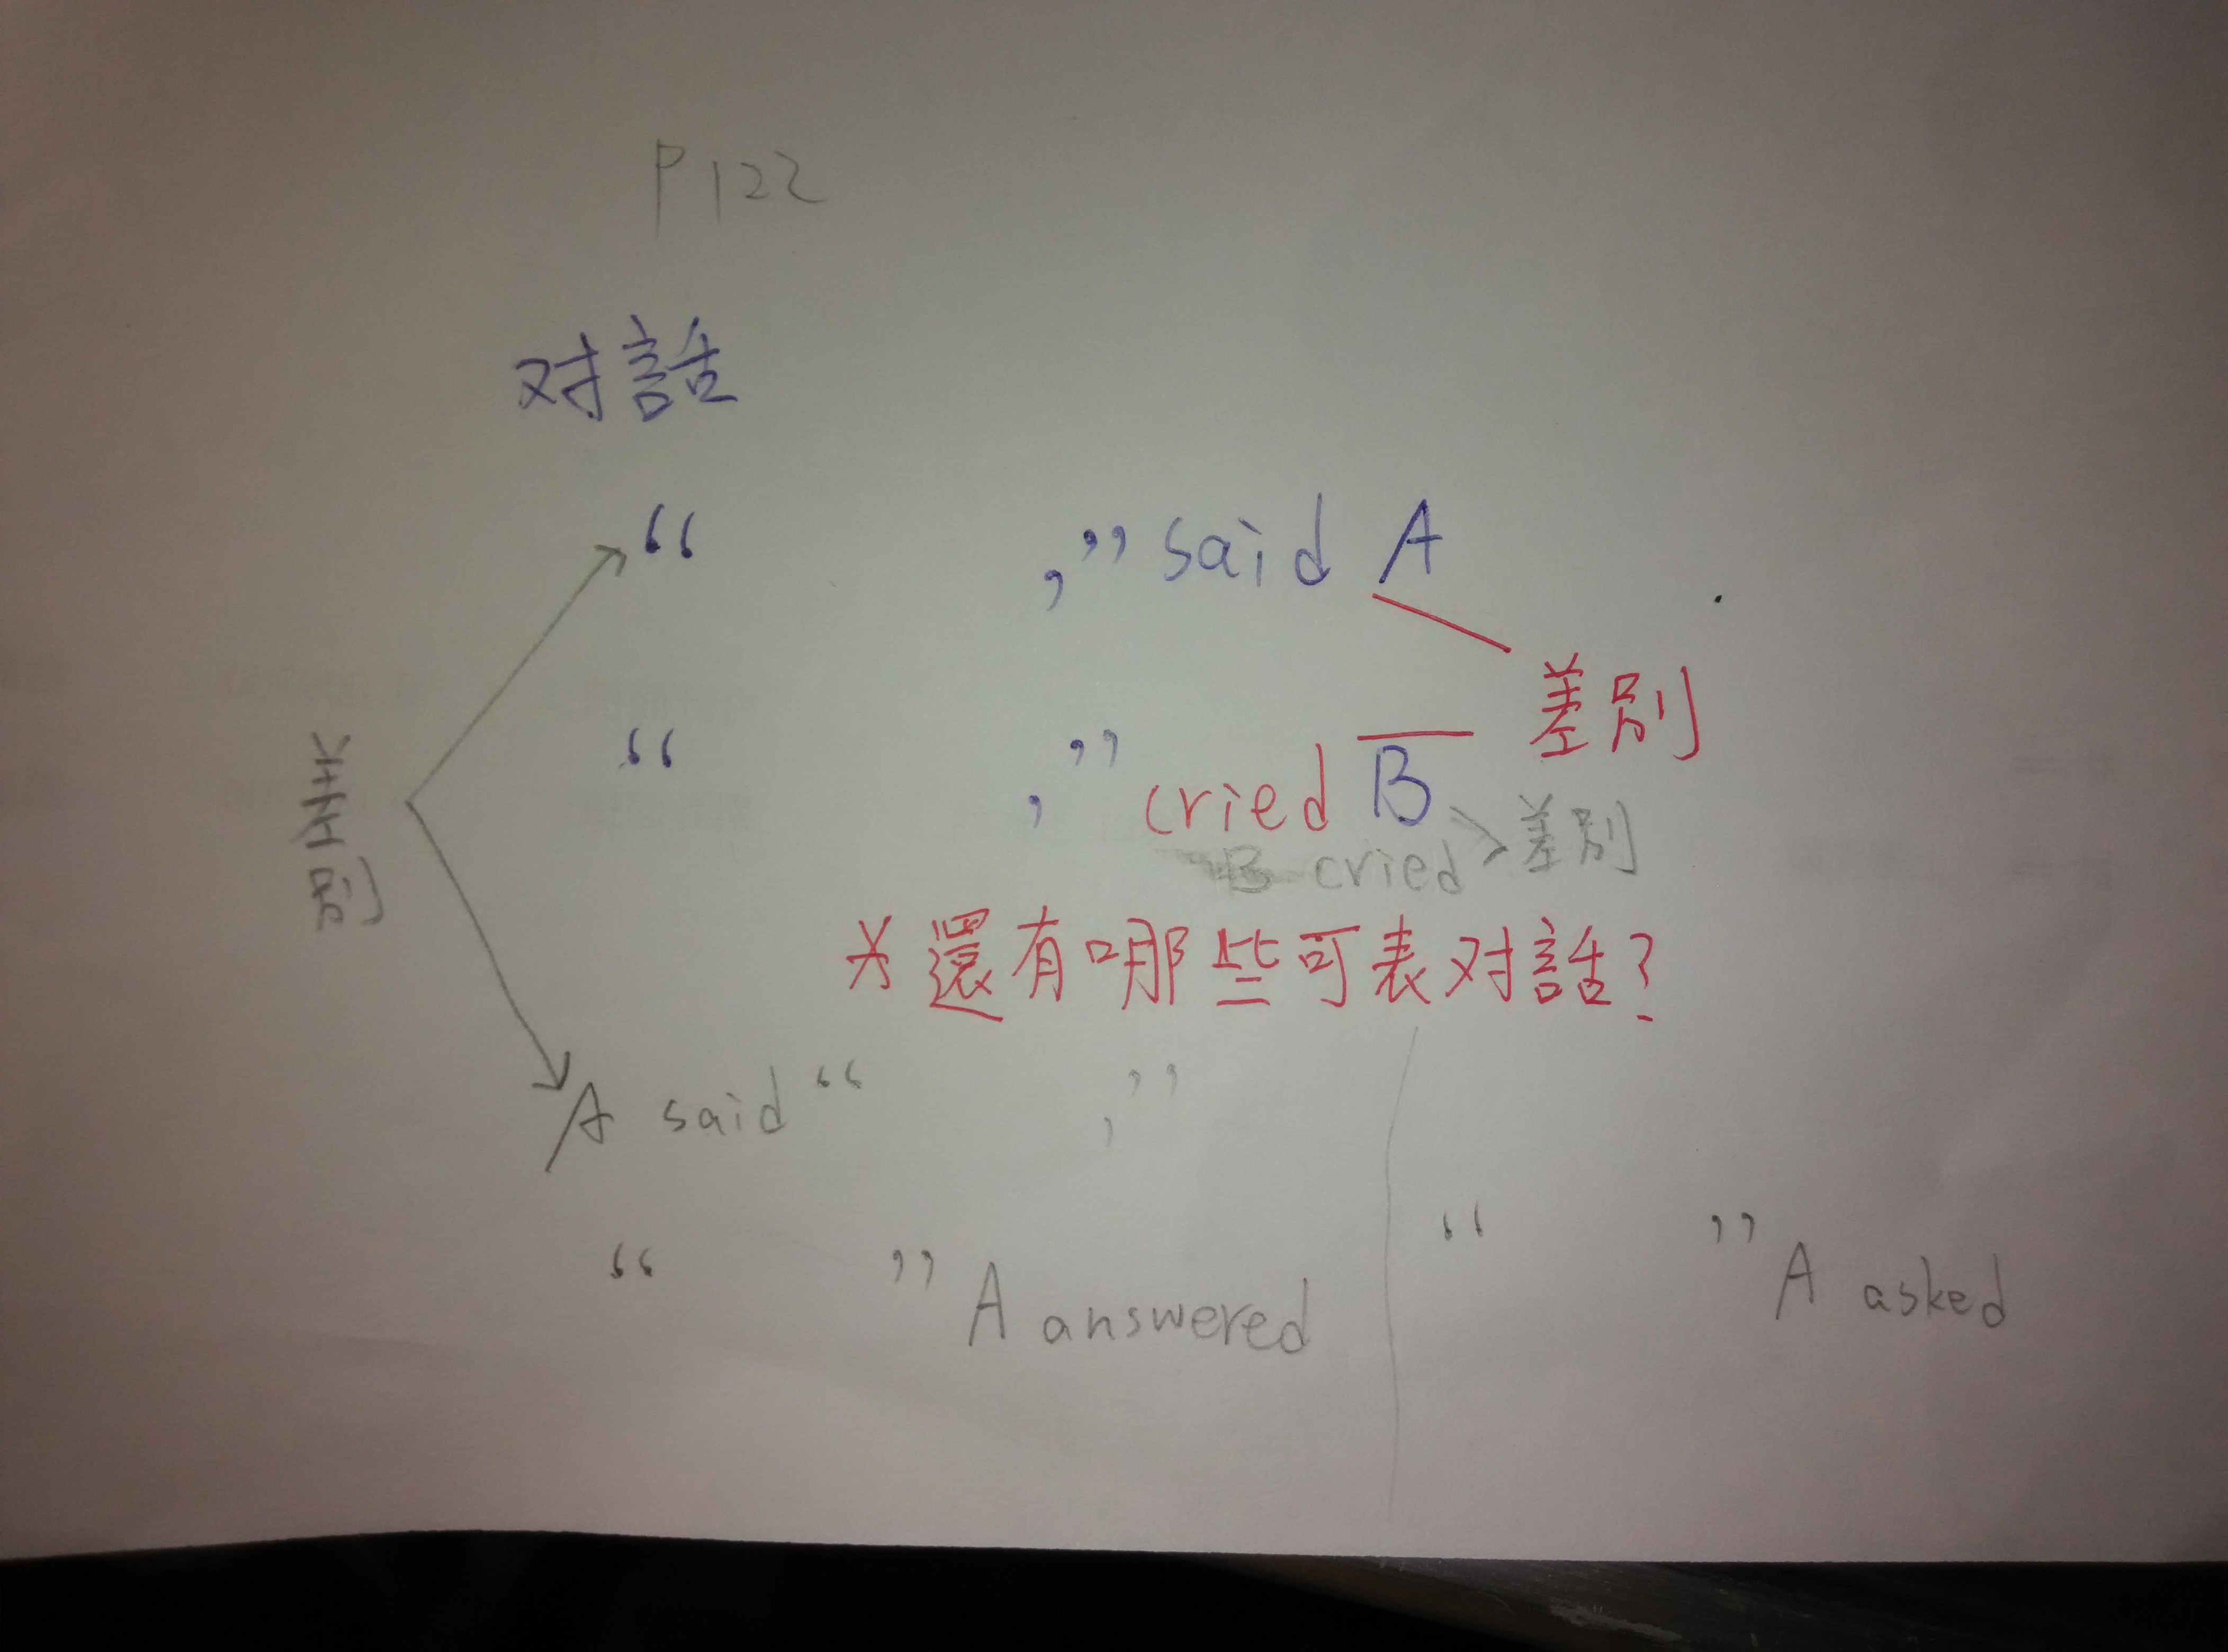 P122
对話
“ ,” said A
差別
“ ,” cried B
B cried 差別
还有哪些可表对話?
A said “ ,”
“ ” A answered
“ ” A asked